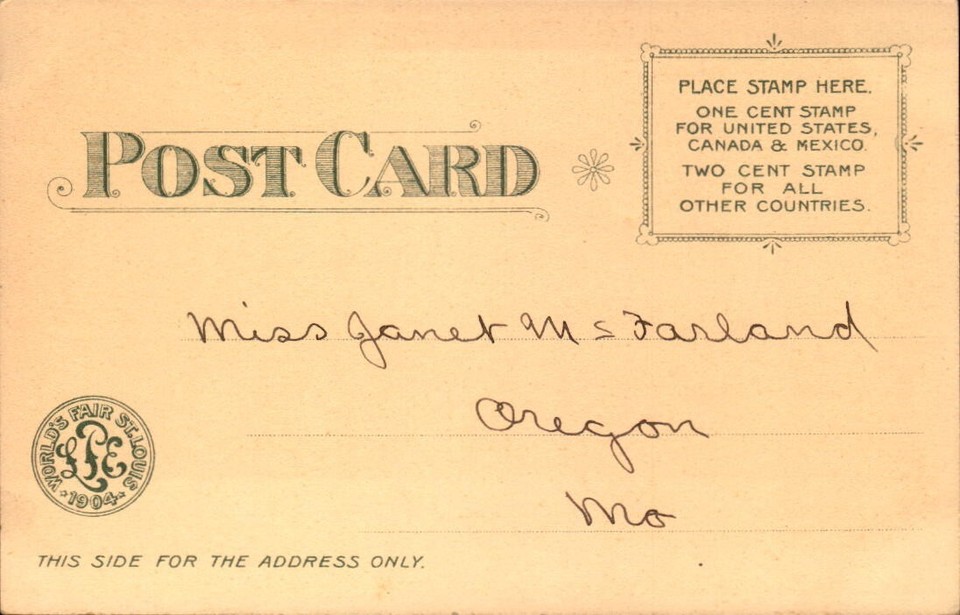 POST CARD
PLACE STAMP HERE.
ONE CENT STAMP
FOR UNITED STATES,
CANADA & MEXICO.
TWO CENT STAMP
FOR ALL
OTHER COUNTRIES.
Miss Janet Mc Farland
Oregon
Mo
WORLD'S FAIR ST. LOUIS
LPE
1904
THIS SIDE FOR THE ADDRESS ONLY.